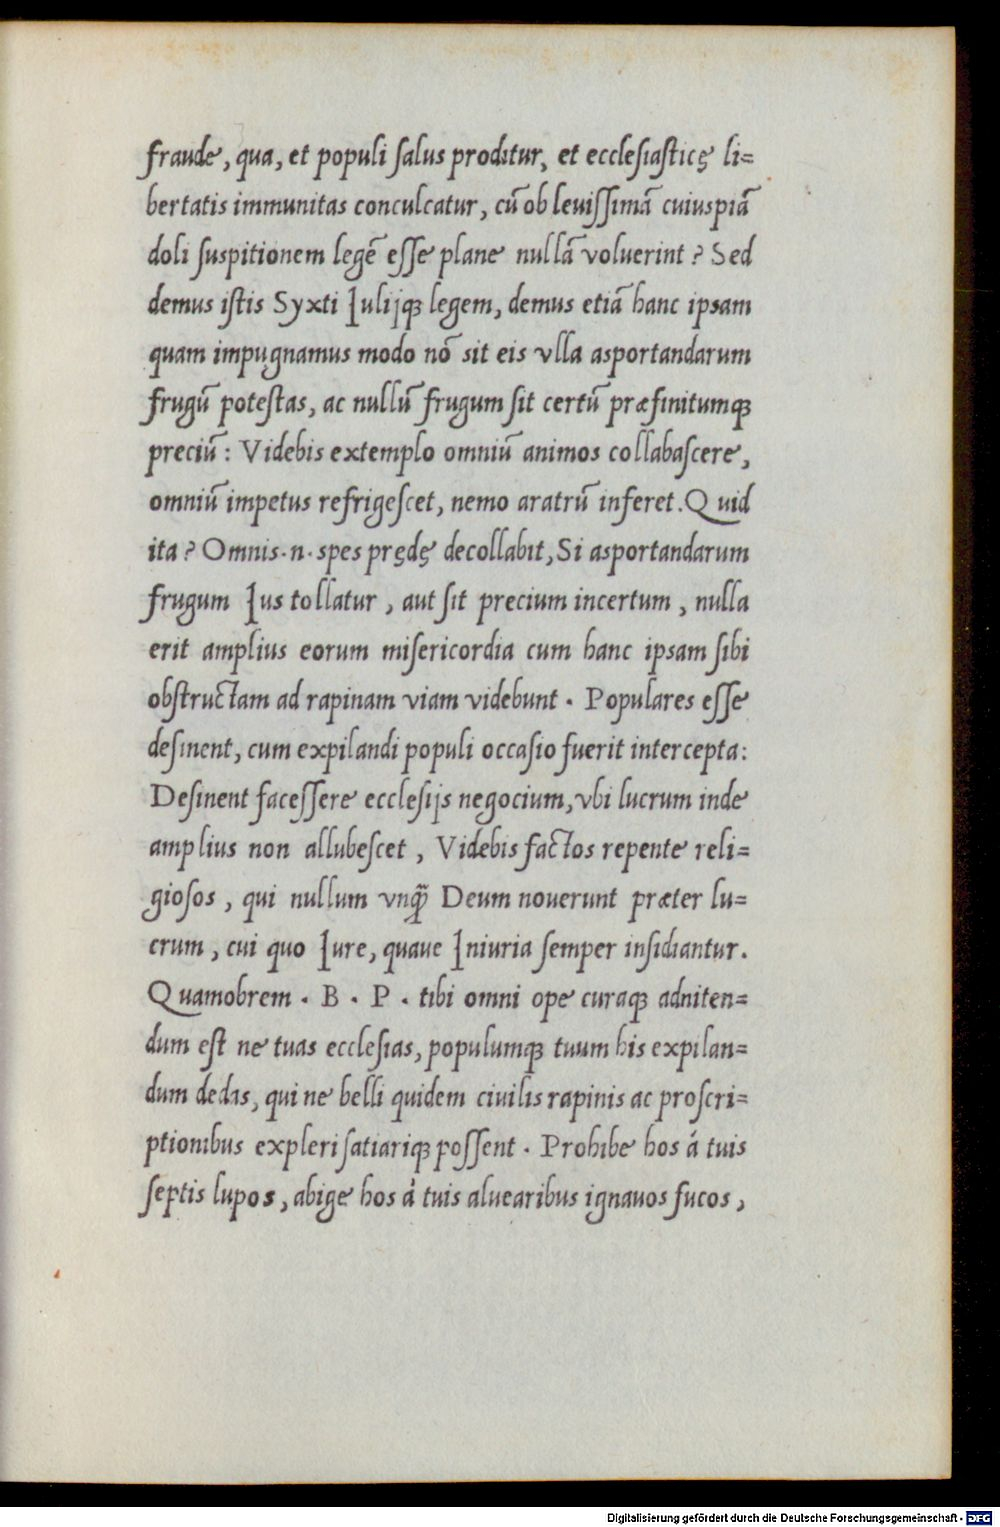 fraude, qua, et populi ſalus proditur, et eccleſiaſticę li=
bertatis immunitas conculcatur, cū ob leuiſſimā cuiuspiā
doli ſuspitionem legē eſſe plane nullā voluerint? Sed
demus iſtis Syxti Iulijqꝫ legem, demus etiā hanc ipsam
quam impugnamus modo nō sit eis vlla asportandarum
frugū poteſtas, ac nullū frugum ſit certū præfinitumqꝫ
preciū: Videbis extemplo omniū animos collabaſcere,
omniū impetus refrigeſcet, nemo aratrū inferet. Quid
ita? Omnis·n·spes prędę decollabit, Si asportandarum
frugum Ius tollatur, aut ſit precium incertum, nulla
erit amplius eorum miſericordia cum hanc ipsam ſibi
obſtructam ad rapinam viam videbunt. Populares eſſe
deſinent, cum expilandi populi occaſio fuerit intercepta:
Deſinent faceſſere eccleſijs negocium, vbi lucrum inde
amplius non allubeſcet, Videbis factos repente reli=
gioſos, qui nullum vnq̃ Deum nouerunt præter lu=
crum, cui quo Iure, quaue Iniuria ſemper inſidiantur.
Quamobrem. B. P. tibi omni ope curaqꝫ adniten=
dum eſt ne tuas eccleſias, populumqꝫ tuum his expilan=
dum dedas, qui ne belli quidem ciuilis rapinis ac proſcri=
ptionibus expleri ſatiariqꝫ poſſent. Prohibe hos á tuis
ſeptis lupos, abige hos á tuis aluearibus ignauos fucos,
Digitalisierung gefördert durch die Deutsche Forschungsgemeinschaft - DFG